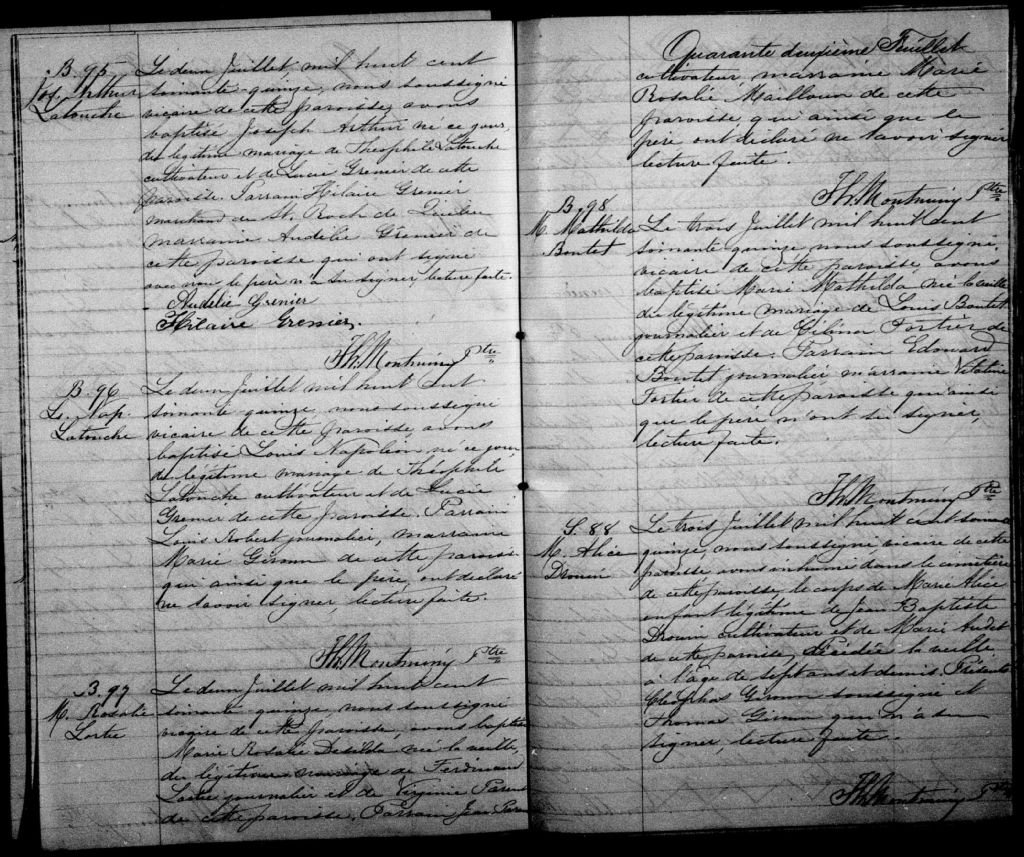 B. 95
Jos. Arthur
Latouche
Le deux Juillet mil huit cent
soixante-quinze, nous soussigné
vicaire de cette paroisse, avons
baptisé Joseph Arthur né ce jour,
du légitime mariage de Théophile Latouche
cultivateur et de Lucie Grenier de cette
paroisse. Parrain Hilaire Grenier
marchand de St. Roch de Québec
marraine Audélie Grenier de
cette paroisse qui ont signé
avec nous le père n'a su signer, lecture faite.
Audélie Grenier
Hilaire Grenier.
Th. Montminy Ptre
B. 96
Ls. Nap.
Latouche
Le deux Juillet mil huit cent
soixante quinze, nous soussigné
vicaire de cette paroisse, avons
baptisé Louis Napoléon, né ce jour
du légitime mariage de Théophile
Latouche cultivateur et de Lucie
Grenier de cette paroisse. Parrain
Louis Robert journalier, marraine
Marie Giroux de cette paroisse
qui ainsi que le père, ont déclaré
ne savoir signer, lecture faite.
Th. Montminy Ptre
B. 97
M. Rosalie
Lortie
Le deux Juillet mil huit cent
soixante quinze, nous soussigné
vicaire de cette paroisse, avons baptisé
Marie Rosalie née la veille,
du légitime mariage de Ferdinand
Lortie journalier et de Virginie Parent
de cette paroisse. Parrain Jean
Quarante deuxième Feuillet
cultivateur, marraine Marie
Rosalie Mailloux de cette
paroisse, qui ainsi que le
père ont déclaré ne savoir signer
lecture faite.
Th. Montminy Ptre
B. 98
M. Mathilda
Boutet
Le trois Juillet mil huit cent
soixante quinze nous soussigné,
vicaire de cette paroisse, avons
baptisé Marie Mathilda née la veille
du légitime mariage de Louis Boutet
journalier et de Célina Fortier de
cette paroisse. Parrain Edouard
Boutet journalier marraine
Fortier de cette paroisse qui ainsi
que le père n'ont su signer,
lecture faite.
Th. Montminy Ptre
S. 88
M. Alice
Drouin
Le trois Juillet mil huit cent soixante
quinze, nous soussigné, vicaire de cette
paroisse avons inhumé dans le cimetière
de cette paroisse, le corps de Marie Alice
enfant légitime de Jean Baptiste
Drouin cultivateur et de Marie Audet
de cette paroisse, décédée la veille
à l'age de sept ans et demis. Présents
Cléophas Giroux soussigné et
Thomas Giroux qui n'a su
signer, lecture faite.
Th. Montminy Ptre